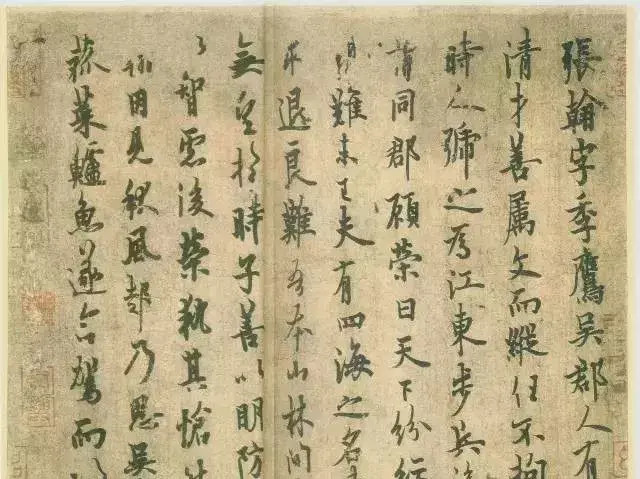 張翰字季鷹吳郡人有
清才善属文而縱任不拘
時人號之為江東步兵後
謂同郡顧榮曰天下紛紜
難未已夫有四海之名
求退良難吾本山林間
無望於時子善以明防
智慮後榮執其愴然
翰因見秋風起乃思吳
菰菜鱸魚遂命駕而